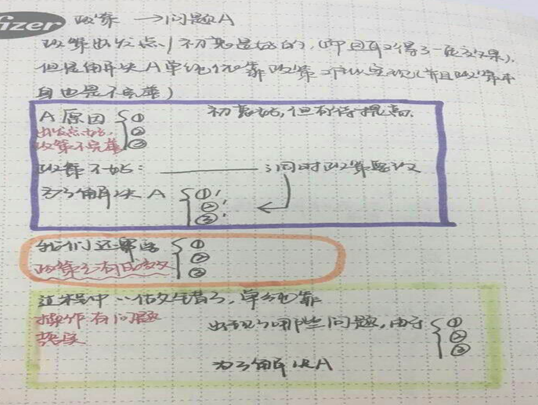 izer 政策 → 问题A
政策出发点/初衷是好的,(即且取得了一定效果),
但是解决A单纯依靠政策 (并且政策本
自也是不完善)
A原因 { ① 初衷好,但有待提高.
出发点好. ②
政策不完善 ③
政策不好: ; 同时政策
为了解决 A { ①'
②'
③'
我们还要 { ①
政策之有 ②
③
过程中 ,单纯靠
操作有问题 出现了哪些问题,由于 { ①
②
③
为了解决A